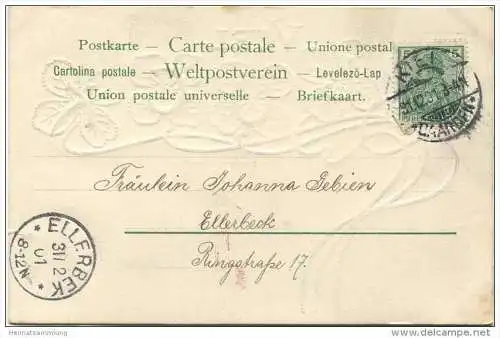 Postkarte — Carte postale — Unione postal
Cartolina postale — Weltpostverein — Levelező-Lap
Union postale universelle — Briefkaart.
5 5
KIEL
GAARDEN
Fräulein Johanna Gebien
Ellerbeck
Ringstraße 17.
* ELLERBEK *
31/12
01
8-12N
Heimatsammlung
www.ansichtskartenversand.com